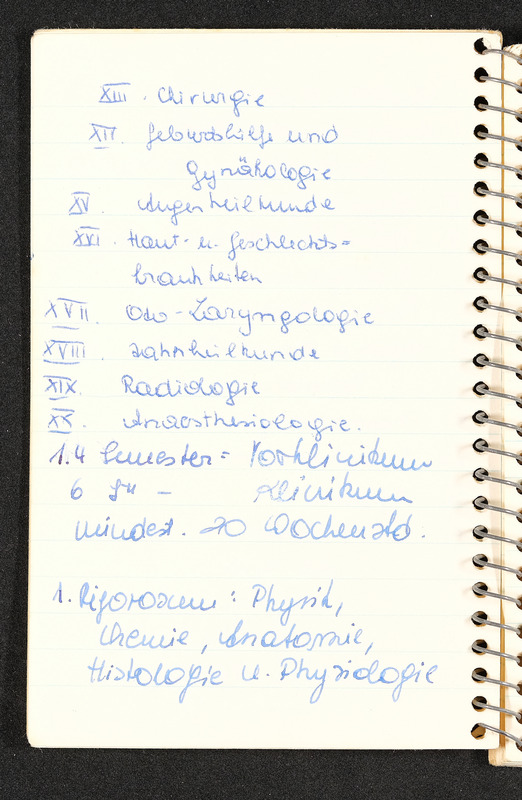 XIII. Chirurgie
XIV. Geburtshilfe und
Gynäkologie
XV. Augenheilkunde
XVI. Haut- u. Geschlechts=
krankheiten
XVII. Oto-Laryngologie
XVIII. Zahnheilkunde
XIX. Radiologie
XX. Anaesthesiologie.
1.4 Semester = Vorklinikum
6 – Klinikum
mindest. 20 Wochenstd.
1. Rigorosum: Physik,
Chemie, Anatomie,
Histologie u. Physiologie